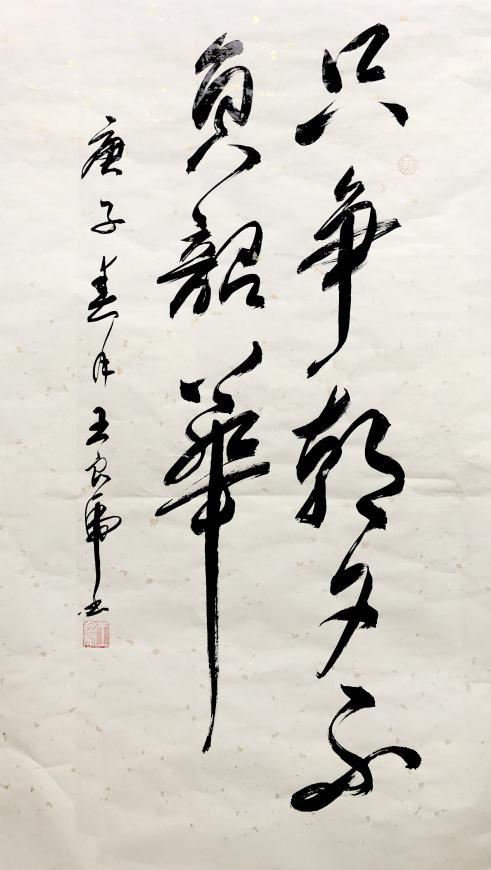 只争朝夕不
负韶华
庚子春月王良虎书